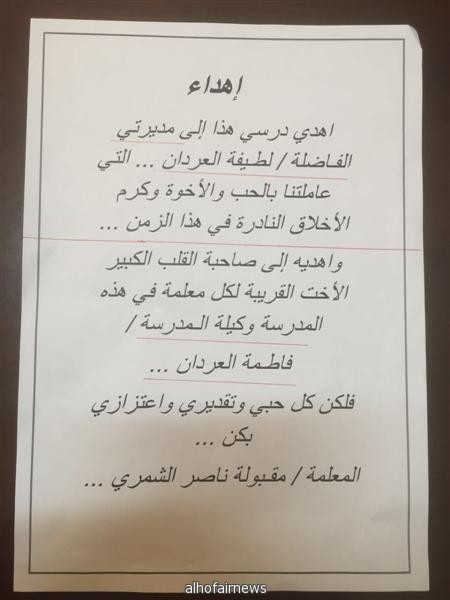 إهداء
اهدي درسي هذا إلى مديرتي
الفاضلة / لطيفة العردان ... التي
عاملتنا بالحب والأخوة وكرم
الأخلاق النادرة في هذا الزمن ...
واهديه إلى صاحبة القلب الكبير
الأخت القريبة لكل معلمة في هذه
المدرسة وكيلة المدرسة /
فاطمة العردان ...
فلكن كل حبي وتقديري واعتزازي
بكن ...
المعلمة / مقبولة ناصر الشمري ...
alhofairnews